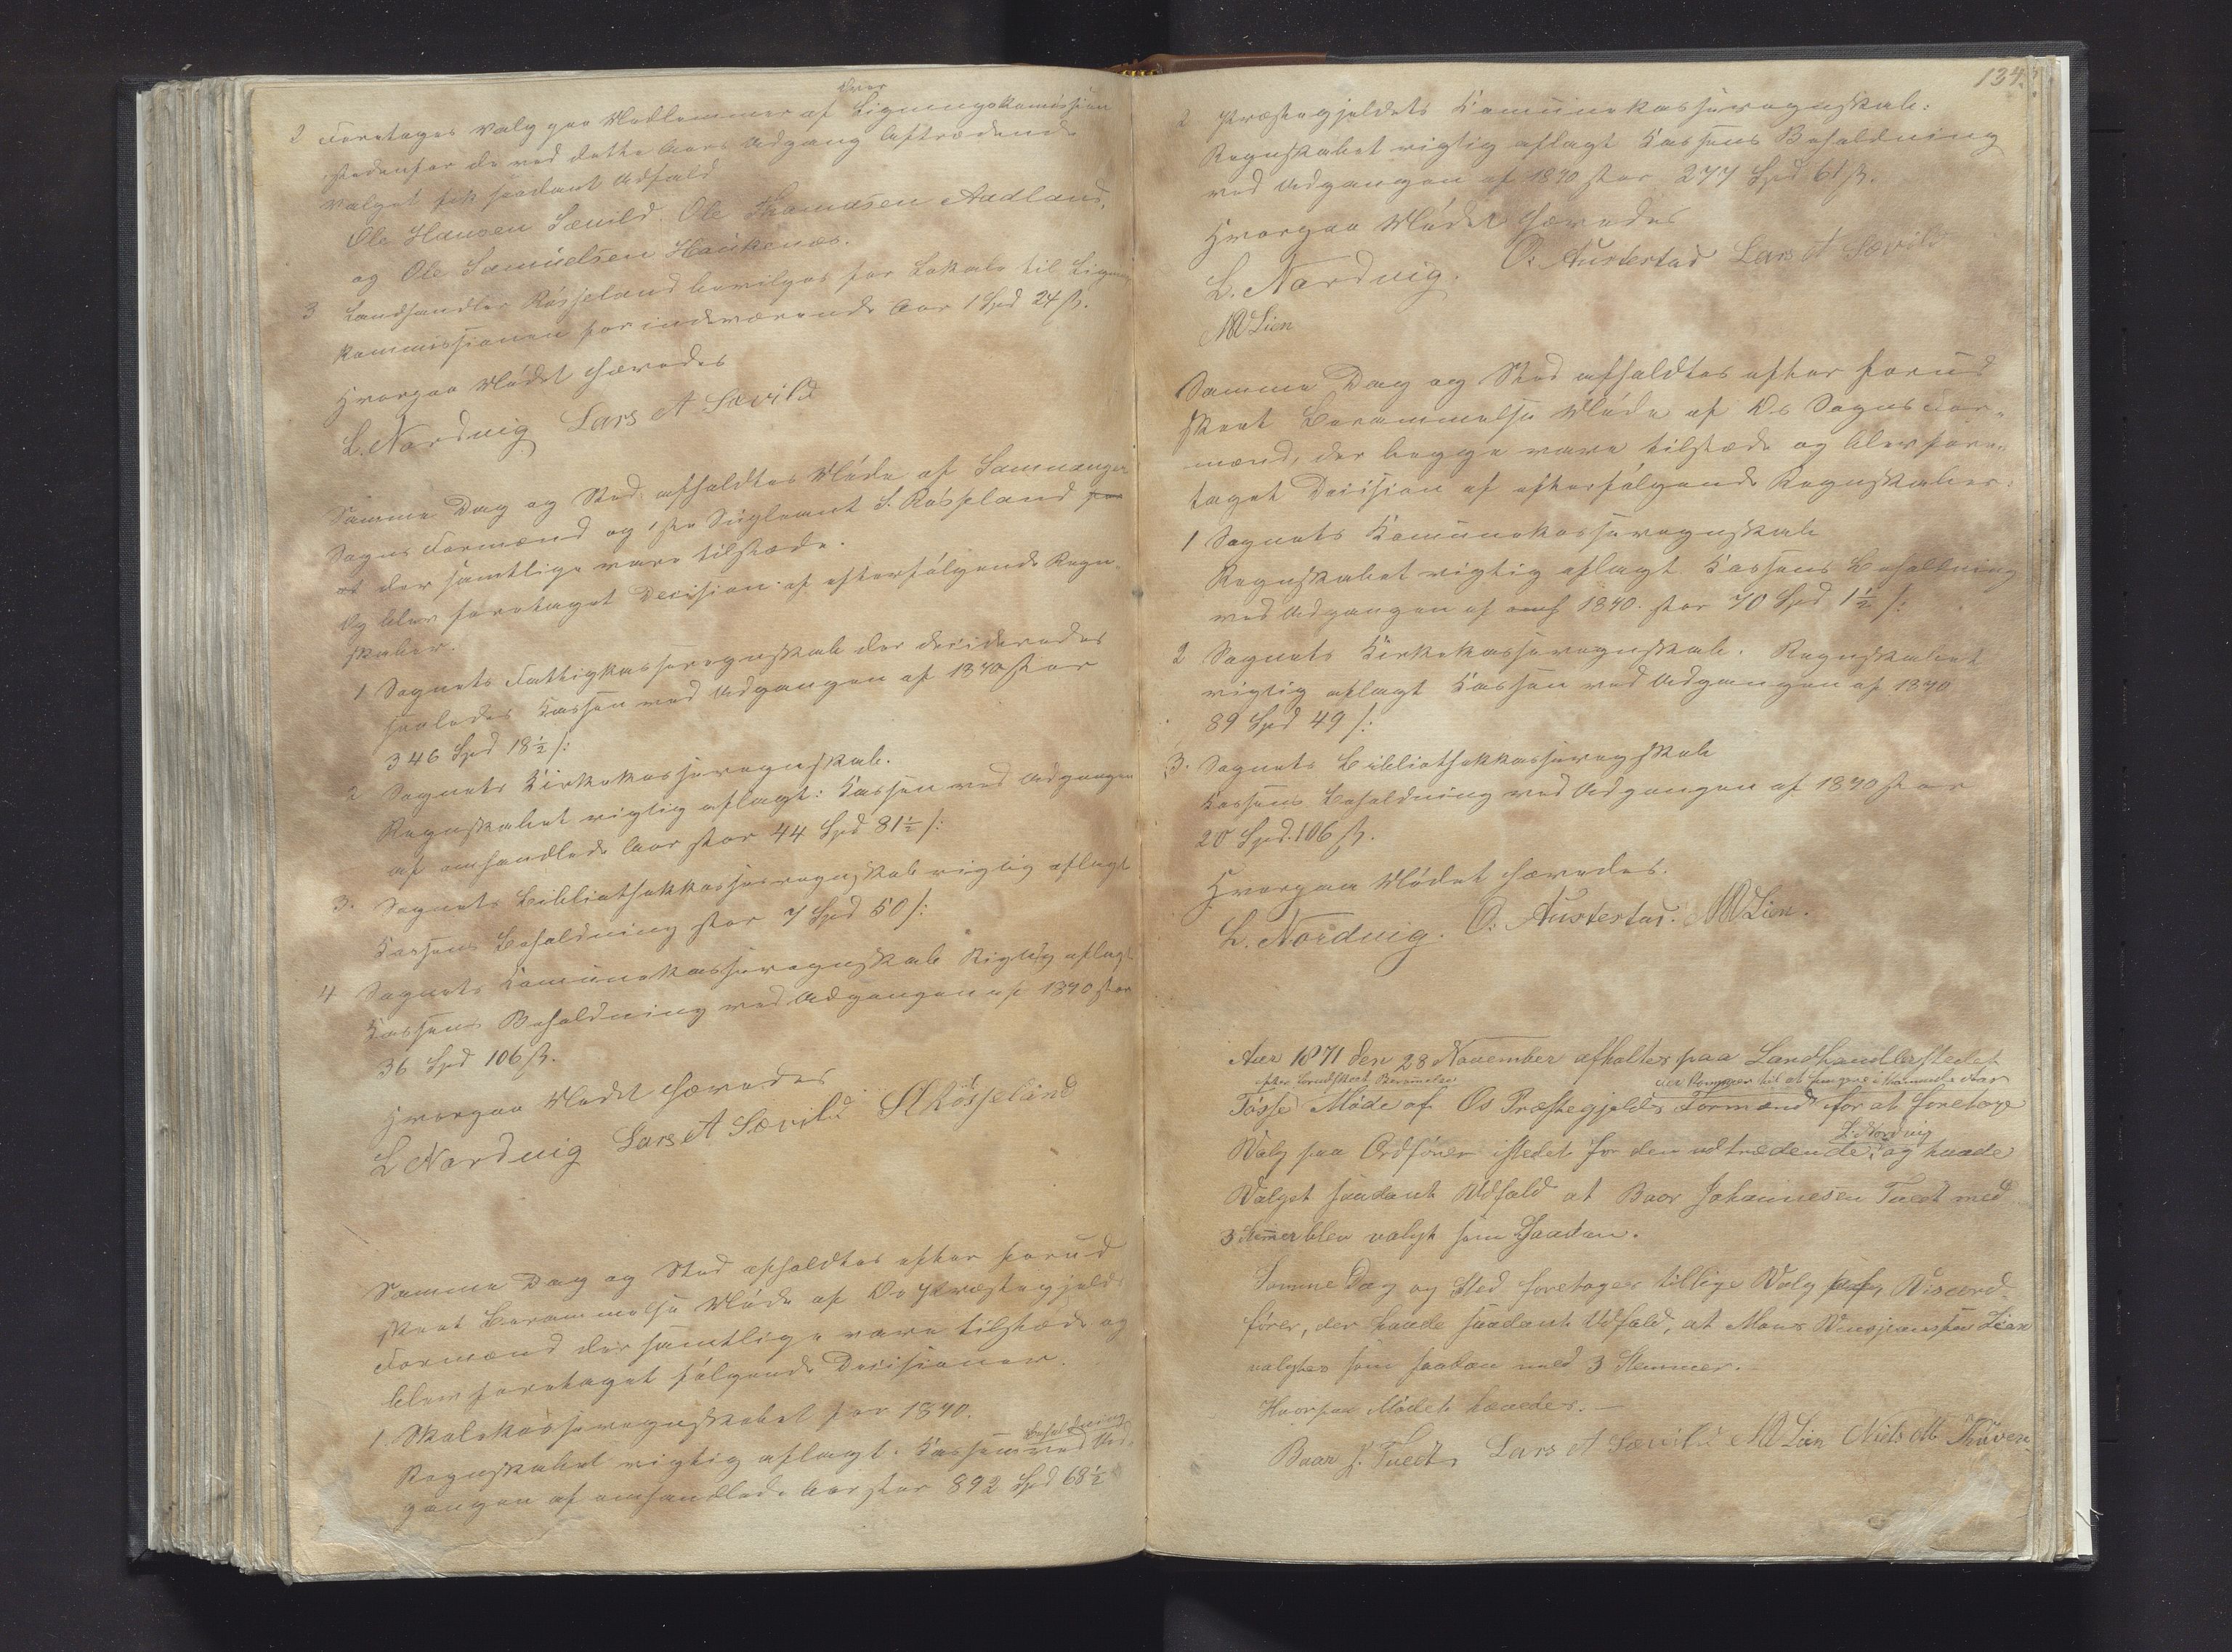 2 Foretages Valg paa Medlemmer af Over Ligningskomissionen
istedenfor de ved dette Aars Udgang Aftrædende
Valget fik saadant Udfald
Ole Hansen Sævild. Ole Thomasen Aadland,
og Ole Samuelsen Haukenæs.
3 Landhandler Røsseland bevilges for Lokale til Lignings
kommissionen for indeværende Aar 1 Spd 24 ß.
Hvorpaa Mødet hævedes
L. Nordvig Lars A Sævild
Samme Dag og Sted afholdtes Møde af Samnanger
Sogns Formænd og 1ste Supleant S. Røsseland
at der samtlige vare tilstæde.
Og blev foretaget Decision af efterfølgende Regn-
skaber.
1 Sognets Fattigkasseregnskab der decideredes
saaledes Kassen ved Udgangen af 1870 stor
346 Spd 18½ /:
2 Sognets Kirkekasseregnskab.
Regnskabet rigtig aflagt: Kassen ved Udgangen
af omhandlede Aar stor 44 Spd 81½ /:
3. Sognets Bibliothekkasseregnskab rigtig aflagt
Kassens Beholdning stor 7 Spd 50 /:
4 Sognets Komünekasseregnskab Rigtig aflagt
Kassens Beholdning ved Udgangen af 1870 stor
36 Spd 106 ß.
Hvorpaa Mødet hævedes
L Nordvig Lars A Sævild S Røsseland
Samme Dag og Sted afholdtes efter forud
skeet Berammelse Møde af Os Præstegjelds
Formænd der samtlige vare tilstæde og
blev foretaget følgende Decisioner.
1. Skolekasseregnskabet for 1870.
Regnskabet rigtig aflagt. Kassens Beholdning ved Ud-
gangen af omhandlede Aar stor 892 Spd 68½
134.
2 Præstegjeldets Komünekasseregnskab:
Regnskabet rigtig aflagt Kassens Beholdning
ved Udgangen af 1870 stor 277 Spd 61 ß.
Hvorpaa Mødet hævedes
L. Nordvig. O. Austestad Lars A Sævild
MM Lien
Samme Dag og Sted afholdtes efter forud
skeet Berammelse Møde af Os Sogns For-
mænd, der begge vare tilstæde og blev fore-
taget Decision af efterfølgende Regnskaber:
1 Sognets Komünekasseregnskab
Regnskabet rigtig aflagt Kassens Beholdning
ved Udgangen af 1870. stor 70 Spd 1½ /:
2 Sognets Kirkekasseregnskab. Regnskabet
rigtig aflagt Kassen ved Udgangen af 1870
89 Spd 49 /:
3. Sognets Bibliothekkasseregskab
Kassens Beholdning ved Udgangen af 1870 stor
20 Spd. 106 ß.
Hvorpaa Mødet hævedes.
L. Nordvig. O. Austestad. MM Lien.
Aar 1871 den 28 November afholtes paa Landhandlerstedet
efter forudskeet Berammelse der kommer til at fungere i kommende Aar
Tøsse Møde af Os Præstegjelds Formænd for at foretage
Valg paa Ordfører istedet for den udtrædende L. Nordvig og havde
Valget saadant Udfald at Baar Johannesen Tveit med
3 Stemmer blev valgt som Saadan.
Samme Dag og Sted foretoges tillige Valg paa Viseord-
fører, der havde saadant Udfald, at Mons Lien
valgtes som saadan med 3 Stemmer.
Hvorpaa Mødet hævedes. —
Baar J. Tveit Lars A Sævild MM Lien Niels M.